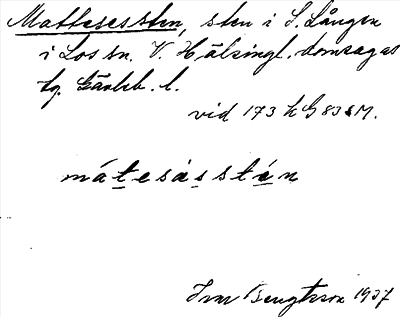 Mattesessten, sten i S. Lången
i Los sn. V. Hälsingl. domsagas
tg. Gävleb. l.
vid 173 h G 83 s M.
mátesàsstán
Ivar Bengtsson 1937